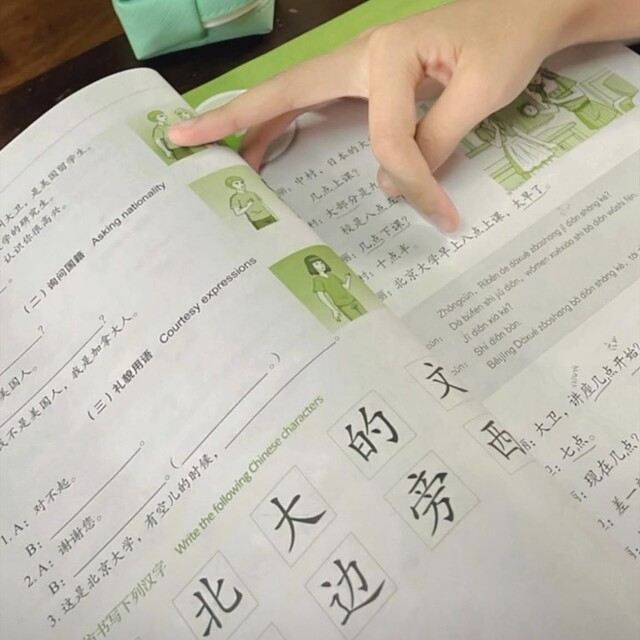 大卫，是美国留学生。
学的研究生。
认识你很高兴。
（二）询问国籍 Asking nationality
？
？
美国人。
不是美国人，我是加拿大人。
（三）礼貌用语 Courtesy expressions
1. A：对不起。
B：。
2. A：谢谢您。
B：。（。）
3. 这是北京大学，有空儿的时候，
书写下列汉字 Write the following Chinese characters
北 大 的 文
边 旁 西
中村，日本的大
几点上课？
大部分是八
校是八点
几点下课？
十点半。
北京大学早上八点上课，太早了。
Zhōngcūn, Rìběn de dàxué zǎoshang jǐ diǎn shàng kè?
Dà bùfen shì jiǔ diǎn, wǒmen xuéxiào shì bā diǎn wǔshí fēn.
Jǐ diǎn xià kè?
Shí diǎn bàn.
Běijīng Dàxué zǎoshang bā diǎn shàng kè, tài zǎo le.
大卫，讲座几点开始？
七点。
现在几点？
差一